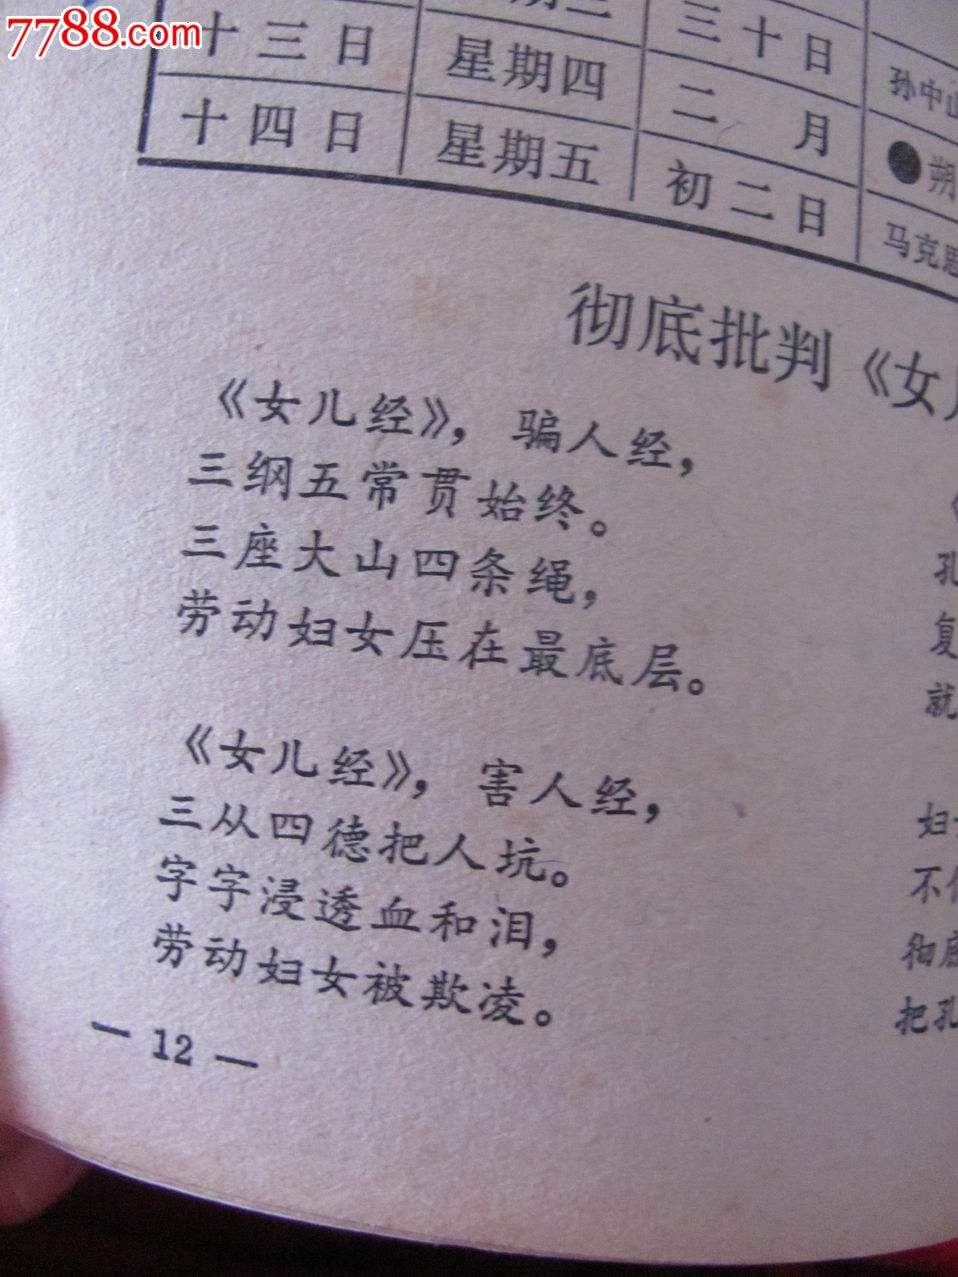 7788.com
十三日 星期四 三十日
孙中山
十四日 星期五 二月
●朔
初二日
马克思
彻底批判《女儿
《女儿经》，骗人经，
三纲五常贯始终。
三座大山四条绳，
劳动妇女压在最底层。
《女儿经》，害人经，
三从四德把人坑。
字字浸透血和泪，
劳动妇女被欺凌。
《
孔
复
就
妇
不
彻底
把孔
— 12 —